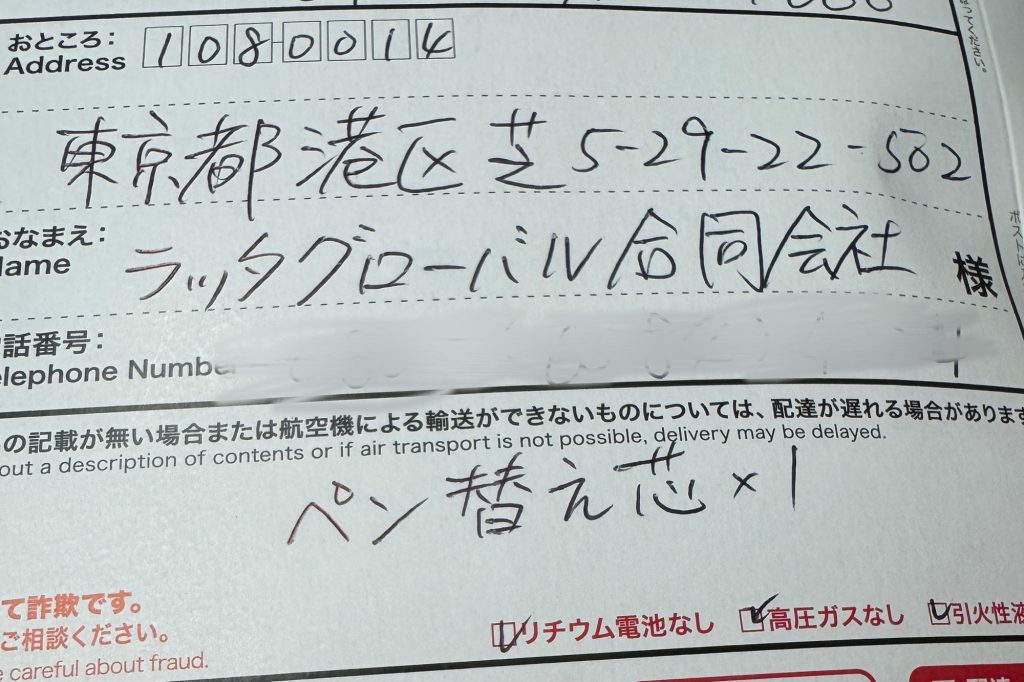 おところ:
Address 1080014
東京都港区芝5-29-22-502
おなまえ:
Name
ラッタグローバル合同会社 様
話番号:
elephone Numbe
の記載が無い場合または航空機による輸送ができないものについては、配達が遅れる場合があります
out a description of contents or if air transport is not possible, delivery may be delayed.
ペン替え芯×1
て詐欺です。
ご相談ください。
e careful about fraud.
リチウム電池なし 高圧ガスなし 引火性液